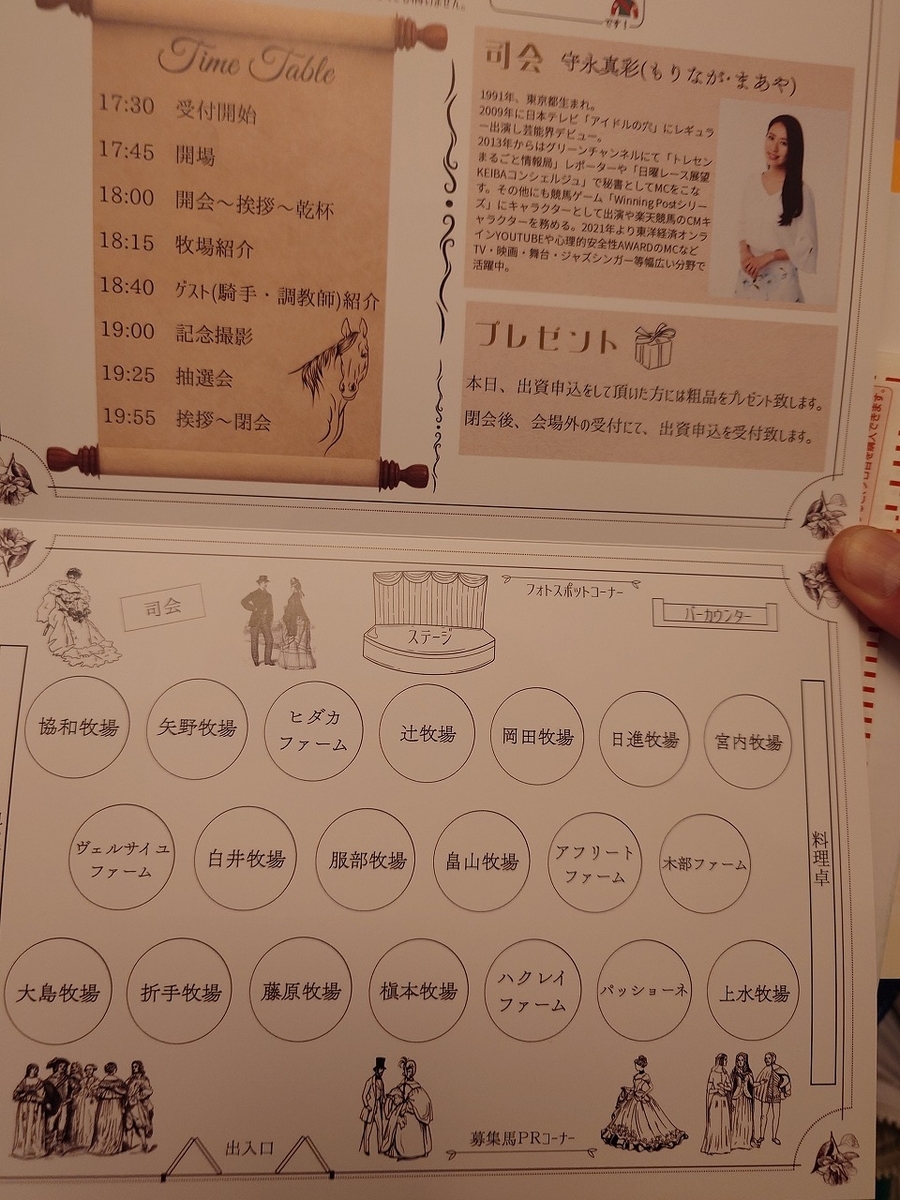 Time Table
17:30 受付開始
17:45 開場
18:00 開会～挨拶～乾杯
18:15 牧場紹介
18:40 ゲスト(騎手・調教師)紹介
19:00 記念撮影
19:25 抽選会
19:55 挨拶～閉会
司会 守永真彩(もりなが・まあや)
1991年、東京都生まれ。
2009年に日本テレビ「アイドルの穴」にレギュラ
ー出演し芸能界デビュー。
2013年からはグリーンチャンネルにて「トレセン
まるごと情報局」レポーターや「日曜レース展望
KEIBAコンシェルジュ」で秘書としてMCをこな
す。その他にも競馬ゲーム「Winning Postシリー
ズ」にキャラクターとして出演や楽天競馬のCMキ
ャラクターを務める。2021年より東洋経済オンラ
インYOUTUBEや心理的安全性AWARDのMCなど
TV・映画・舞台・ジャズシンガー等幅広い分野で
活躍中。
プレゼント
本日、出資申込をして頂いた方には粗品をプレゼント致します。
閉会後、会場外の受付にて、出資申込を受付致します。
司会
ステージ
フォトスポットコーナー
バーカウンター
協和牧場
矢野牧場
ヒダカ
ファーム
辻牧場
岡田牧場
日進牧場
宮内牧場
ヴェルサイユ
ファーム
白井牧場
服部牧場
畠山牧場
アフリート
ファーム
木部ファーム
料理卓
大島牧場
折手牧場
藤原牧場
槇本牧場
ハクレイ
ファーム
パッショーネ
上水牧場
出入口
募集馬PRコーナー